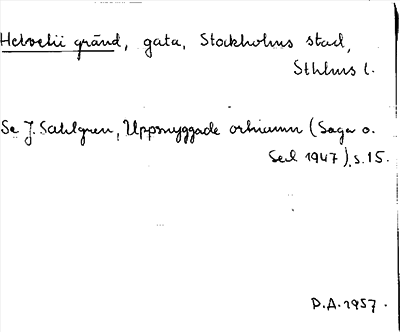 Helvetii gränd, gata, Stockholms stad,
Sthlms l.
Se J. Sahlgren, Uppsnyggade ortnamn (Saga o.
Sed 1947), s. 15.
D.A. 1957.